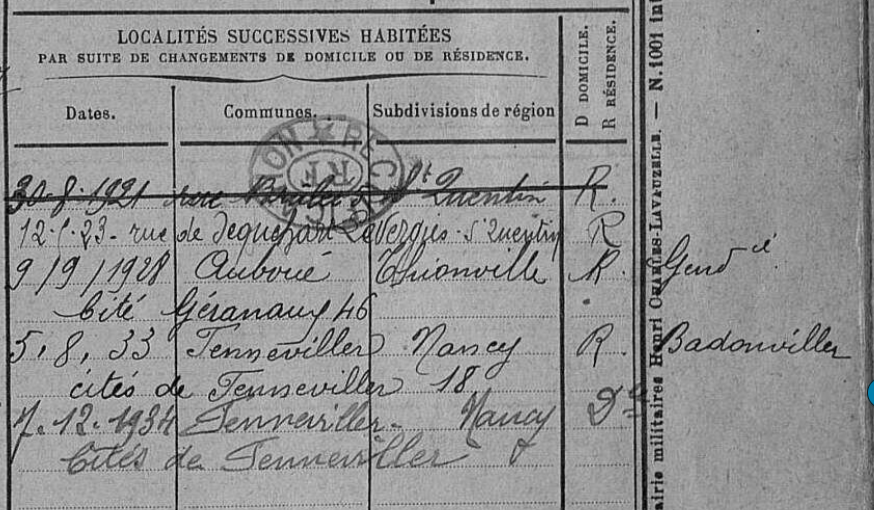 LOCALITÉS SUCCESSIVES HABITÉES
PAR SUITE DE CHANGEMENTS DE DOMICILE OU DE RÉSIDENCE.
Dates. Communes. Subdivisions de région D DOMICILE. R RÉSIDENCE.
30-8-1921 rue 5 St Quentin R.
12-23- rue de LeVergies St Quentin R
9/9/1928 Auboué Thionville R. Gend
Cité 46
5, 8, 33 Tenneviller Nancy R. Badonviller
cités de Tenneviller 18
7-12-1934 Tenneviller - Nancy D
Cités de Tenneviller
RF
Henri CHARLES-LAVAUZELLE. — N. 1001
militaires